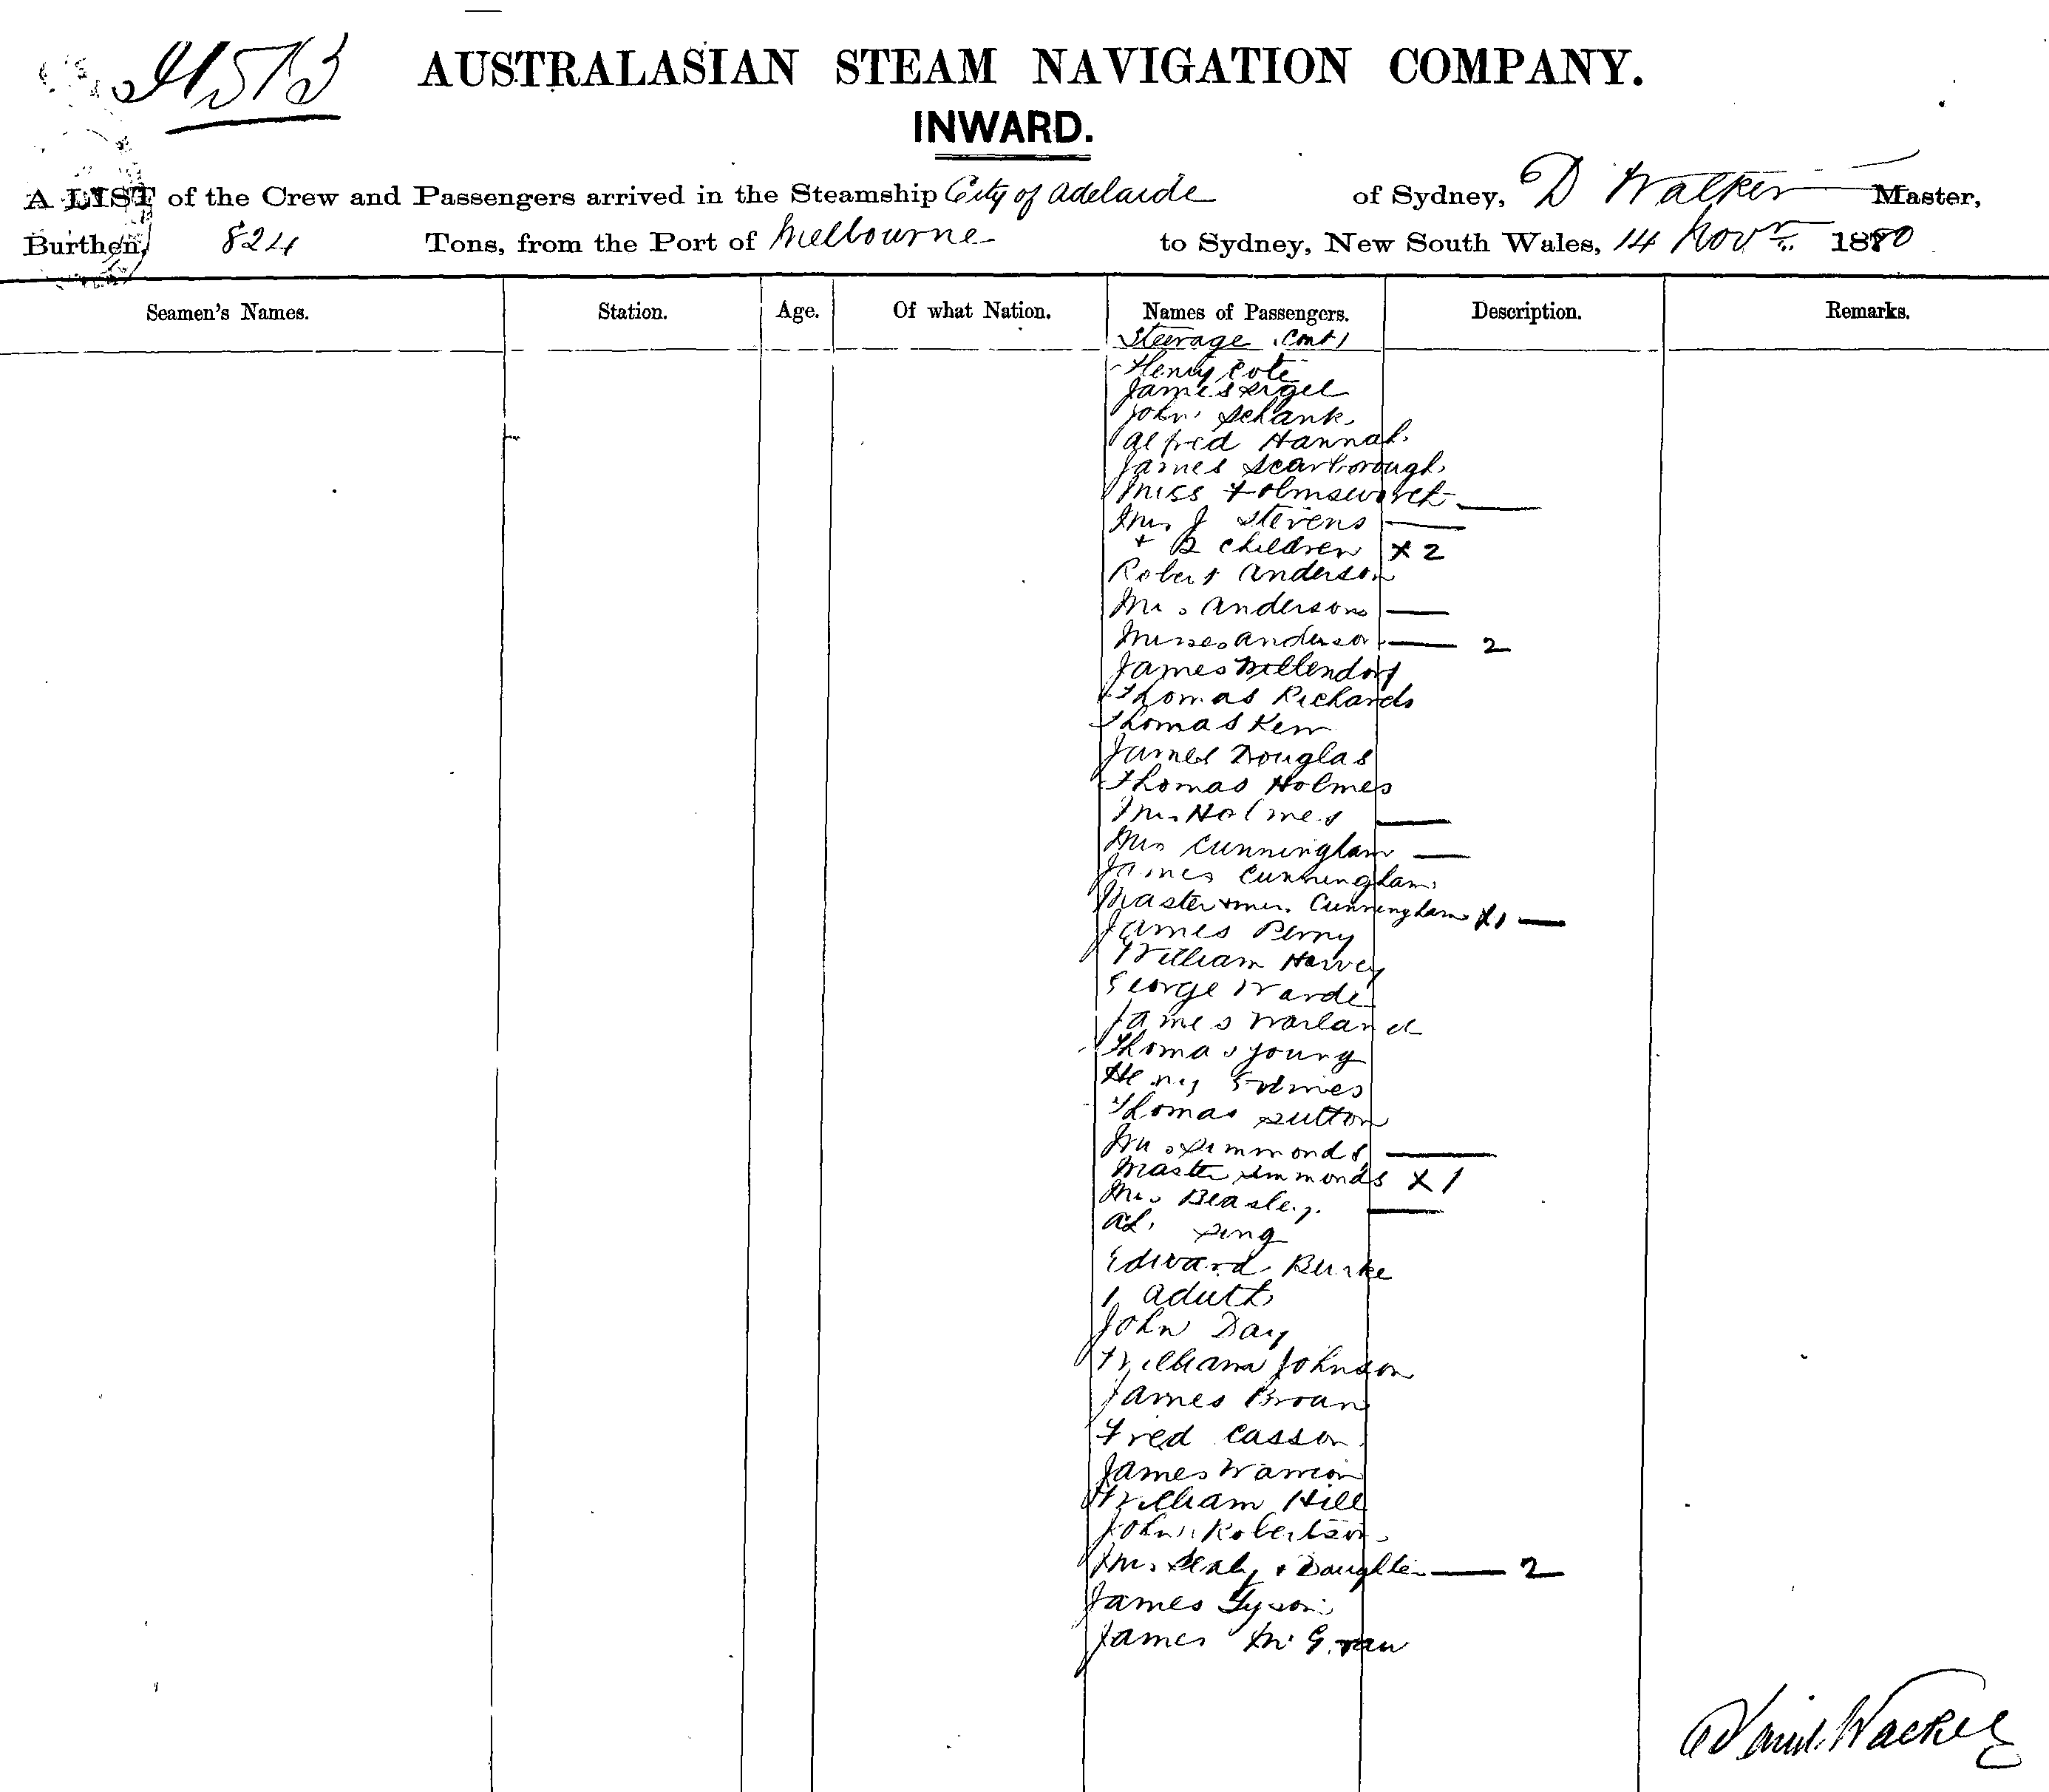 AUSTRALASIAN STEAM NAVIGATION COMPANY.
INWARD.
A LIST of the Crew and Passengers arrived in the Steamship City of Adelaide of Sydney, D Walker Master,
Burthen, 824 Tons, from the Port of Melbourne to Sydney, New South Wales, 14 Novr. 1880
Seamen's Names. Station. Age. Of what Nation. Names of Passengers. Description. Remarks.
Steerage (Cont)
Henry Cole
James Sigel
John Schank
Alfred Hannah
James Scarborough
Miss
Mrs J Stevens —
+ 2 Children x 2
Robert Anderson
Mrs Anderson —
Misses Anderson — 2
James Willendorf
Thomas Richards
Thomas Kerr
James Douglas
Thomas Holmes
Mrs Holmes —
Mrs Cunningham —
James Cunningham
Master + Miss Cunningham x1 —
James Perry
William Harvey
George Warde
James Warland
Thomas Young
Henry
Thomas Sutton
Mrs Simmonds —
Master Simmonds x 1
Mrs Beasley —
Ah Sing
Edward Burke
1 Adult
John Day
William Johnson
James Broun
Fred Casson
James Warrion
William Hill
John Robertson
Mrs Sealy + Daughter — 2
James Tyson
James McGraw
David Walker